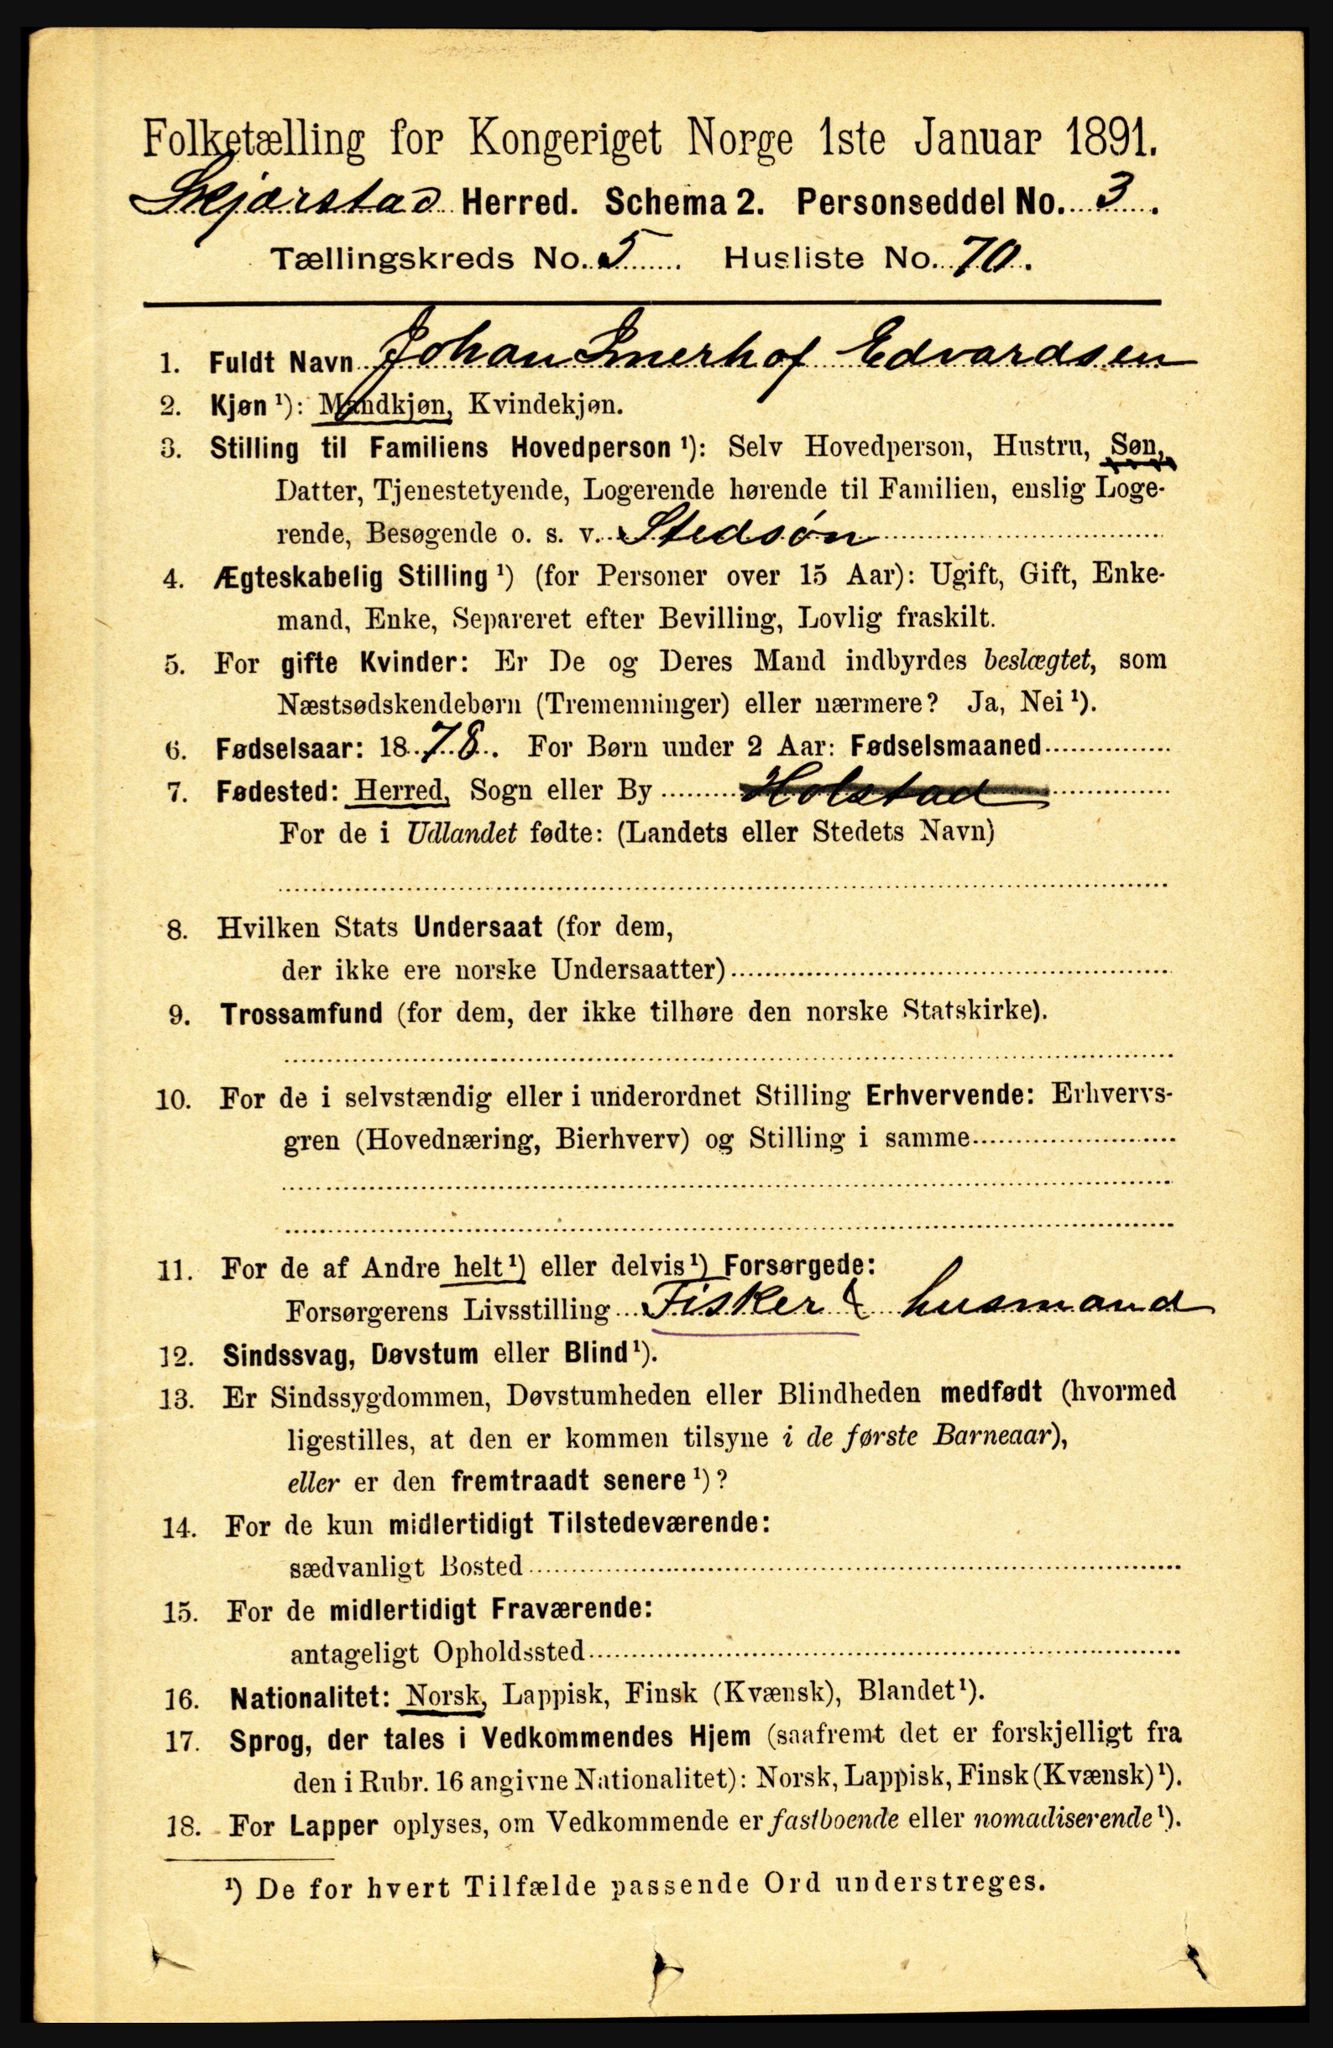 Folketælling for Kongeriget Norge 1ste Januar 1891.
Skjærstad Herred. Schema 2. Personseddel No. 3.
Tællingskreds No. 5 Husliste No. 70.
1. Fuldt Navn Johan Imerhof Edvardsen
2. Kjøn ¹): Mandkjøn, Kvindekjøn.
3. Stilling til Familiens Hovedperson ¹): Selv Hovedperson, Hustru, Søn,
Datter, Tjenestetyende, Logerende hørende til Familien, enslig Loge-
rende, Besøgende o. s. v. Stedsøn
4. Ægteskabelig Stilling ¹) (for Personer over 15 Aar): Ugift, Gift, Enke-
mand, Enke, Separeret efter Bevilling, Lovlig fraskilt.
5. For gifte Kvinder: Er De og Deres Mand indbyrdes beslægtet, som
Næstsødskendebørn (Tremenninger) eller nærmere? Ja, Nei ¹).
6. Fødselsaar: 1878. For Børn under 2 Aar: Fødselsmaaned
7. Fødested: Herred, Sogn eller By Holstad
For de i Udlandet fødte: (Landets eller Stedets Navn)
8. Hvilken Stats Undersaat (for dem,
der ikke ere norske Undersaatter)
9. Trossamfund (for dem, der ikke tilhøre den norske Statskirke).
10. For de i selvstændig eller i underordnet Stilling Erhvervende: Erhvervs-
gren (Hovednæring, Bierhverv) og Stilling i samme
11. For de af Andre helt ¹) eller delvis ¹) Forsørgede:
Forsørgerens Livsstilling Fisker & husmand
12. Sindssvag, Døvstum eller Blind ¹).
13. Er Sindssygdommen, Døvstumheden eller Blindheden medfødt (hvormed
ligestilles, at den er kommen tilsyne i de første Barneaar),
eller er den fremtraadt senere ¹)?
14. For de kun midlertidigt Tilstedeværende:
sædvanligt Bosted
15. For de midlertidigt Fraværende:
antageligt Opholdssted
16. Nationalitet: Norsk, Lappisk, Finsk (Kvænsk), Blandet ¹).
17. Sprog, der tales i Vedkommendes Hjem (saafremt det er forskjelligt fra
den i Rubr. 16 angivne Nationalitet): Norsk, Lappisk, Finsk (Kvænsk) ¹).
18. For Lapper oplyses, om Vedkommende er fastboende eller nomadiserende ¹).
¹) De for hvert Tilfælde passende Ord understreges.